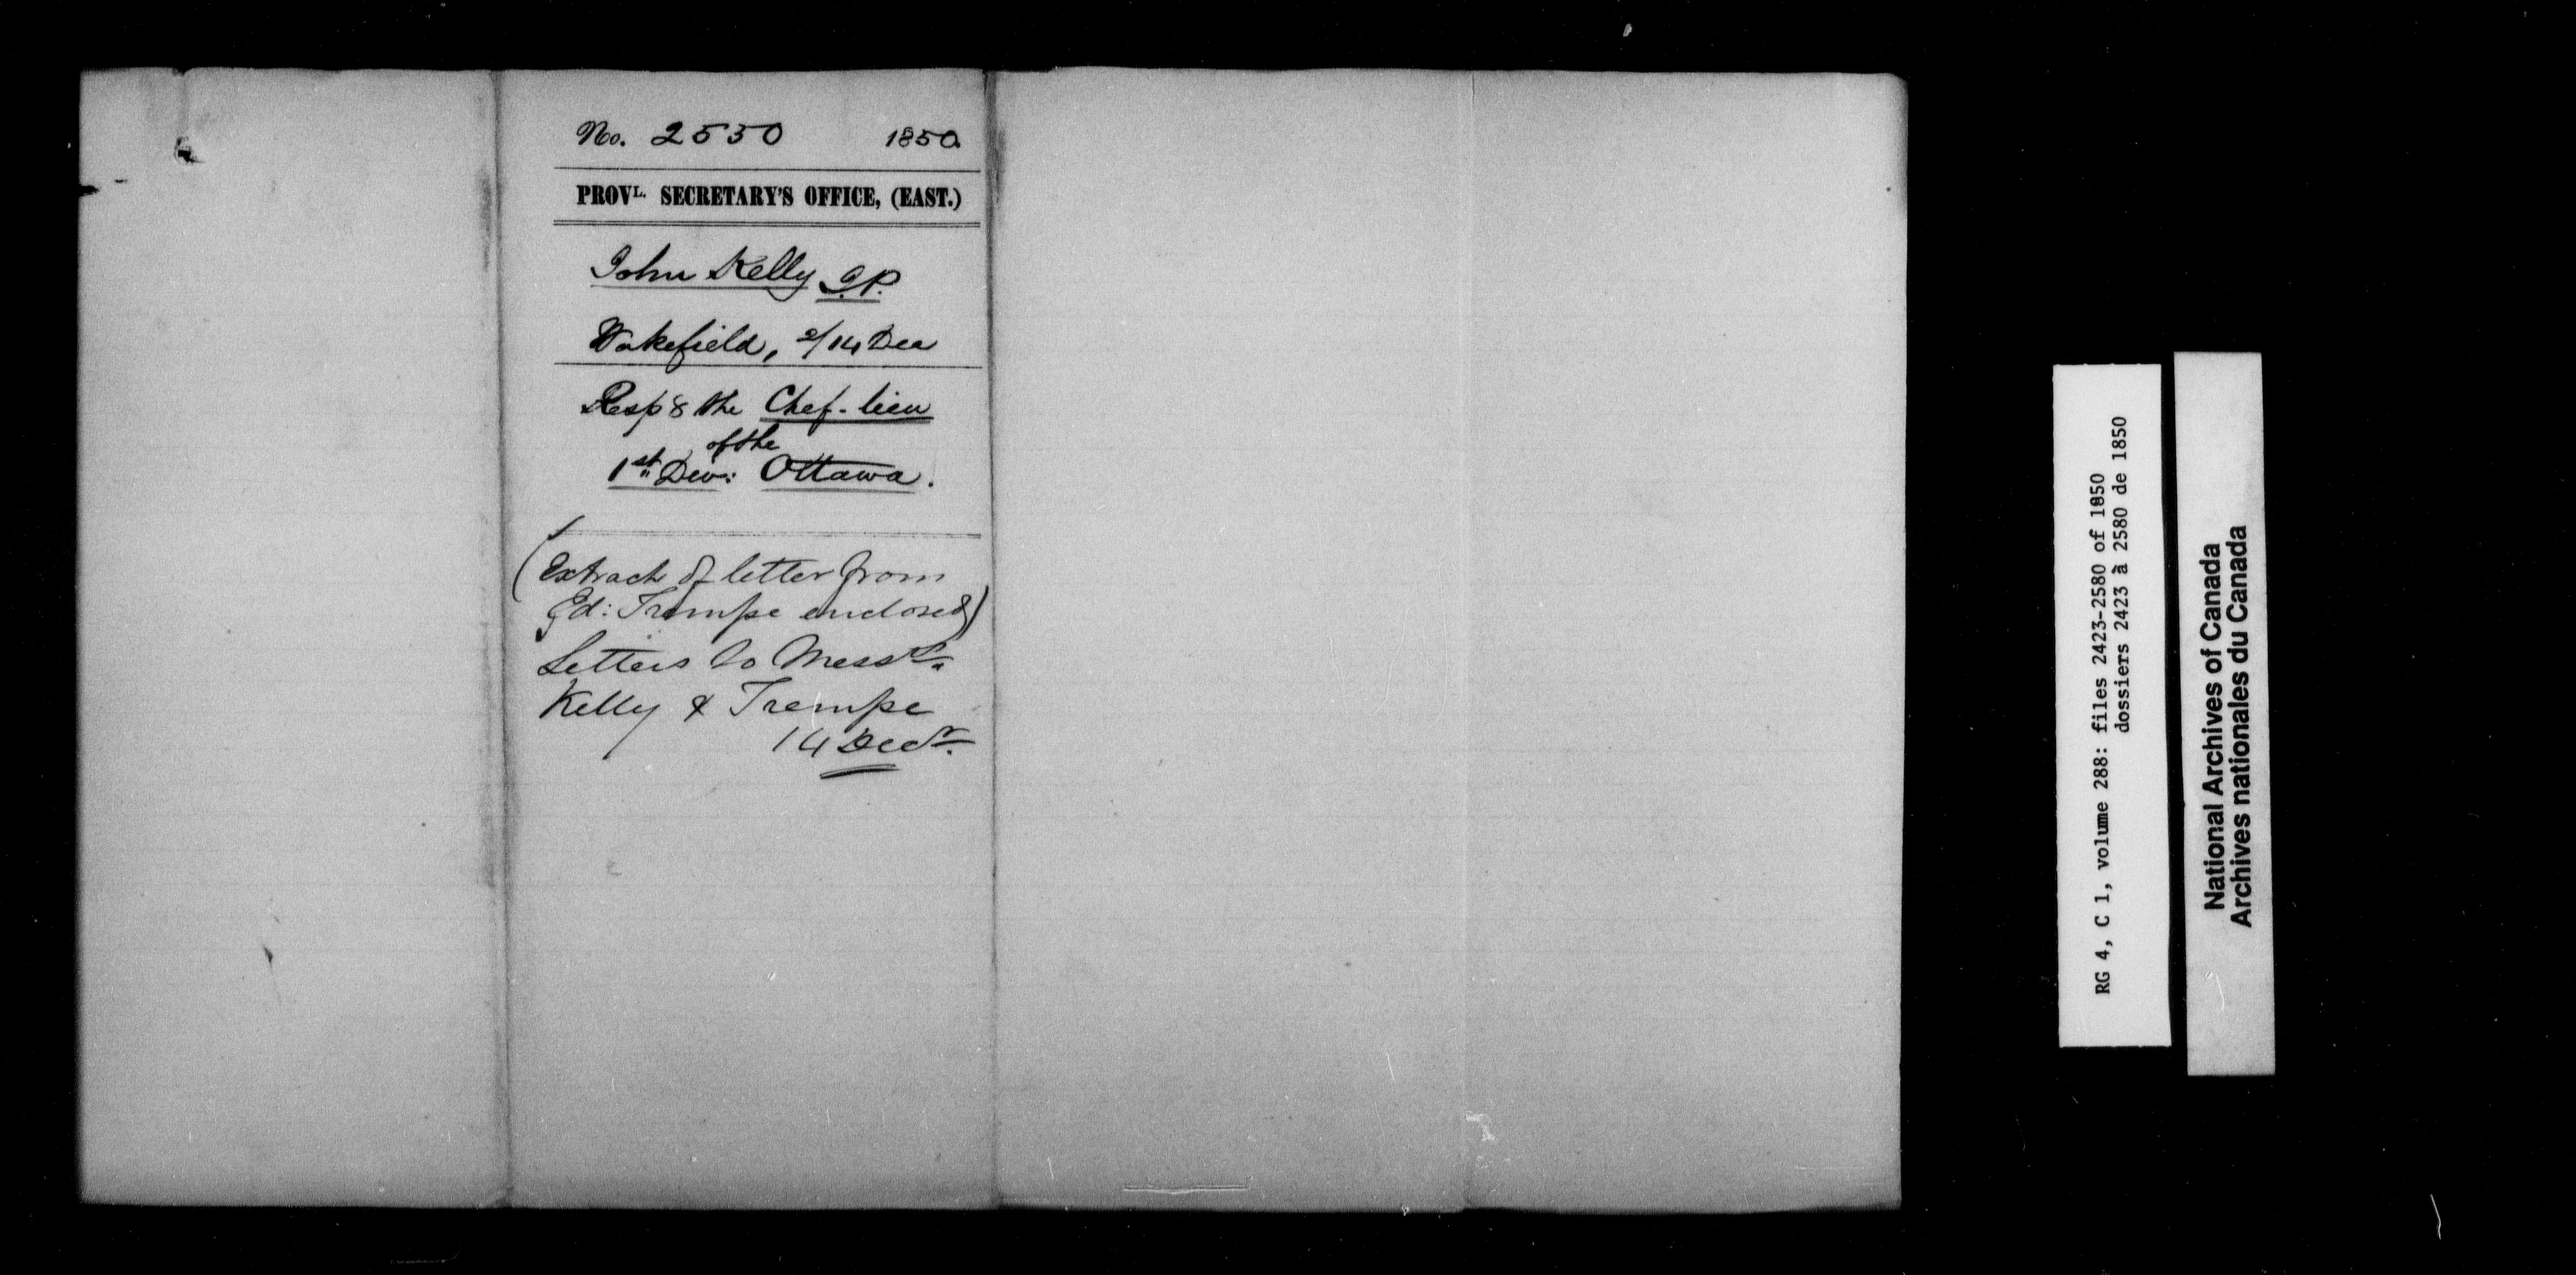 No. 2550 1850.
PROVL. SECRETARY'S OFFICE, (EAST.)
John Kelly J.P.
Wakefield, 2/14 Dec
Respg the Chef-lieu
of the
1st Div: Ottawa.
(Extract of letter from
Ed: Trempe enclosed)
Letters to Messrs.
Kelly & Trempe
14 Decr.
RG 4, C 1, volume 288: files 2423-2580 of 1850
dossiers 2423 à 2580 de 1850
National Archives of Canada
Archives nationales du Canada